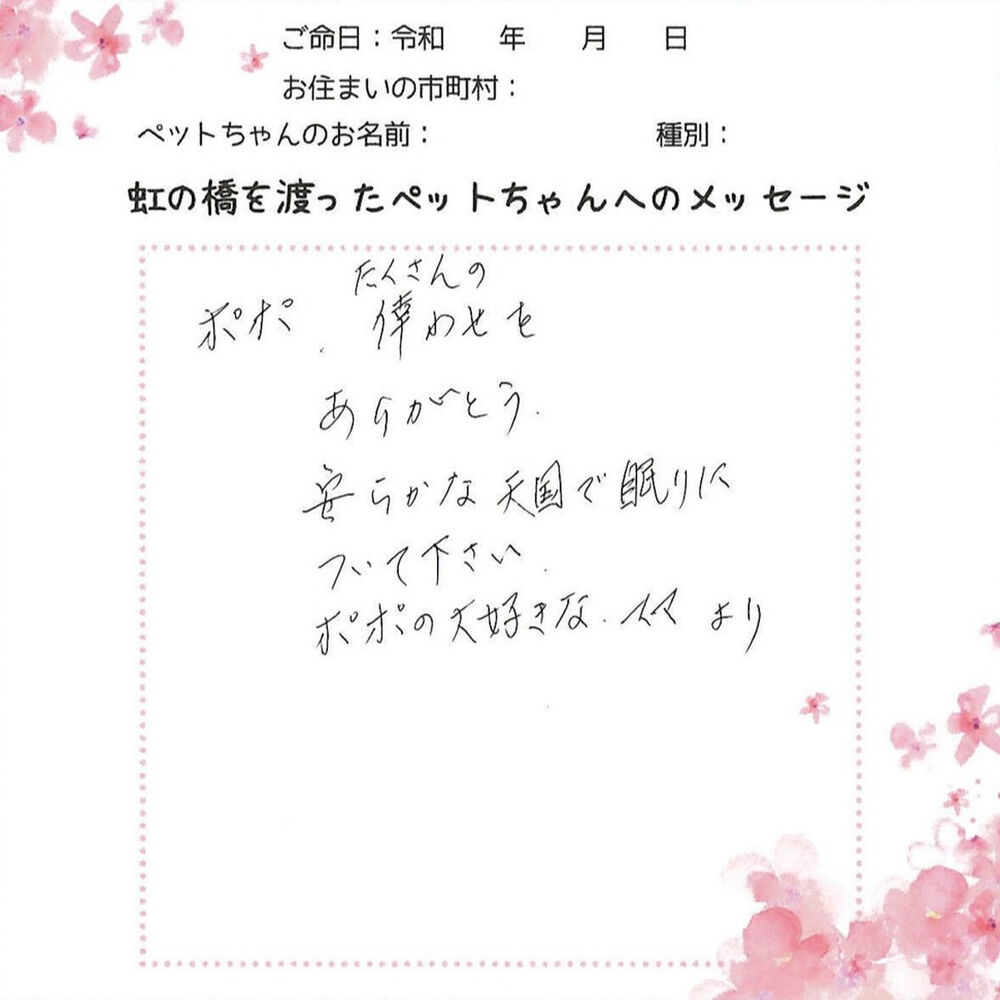 ご命日：令和　　年　　月　　日
お住まいの市町村：
ペットちゃんのお名前：　　　　　　　　種別：
虹の橋を渡ったペットちゃんへのメッセージ
たくさんの
ポポ、倖わせを
ありがとう.
安らかな天国で眠りに
ついて下さい.
ポポの大好きな.ママより